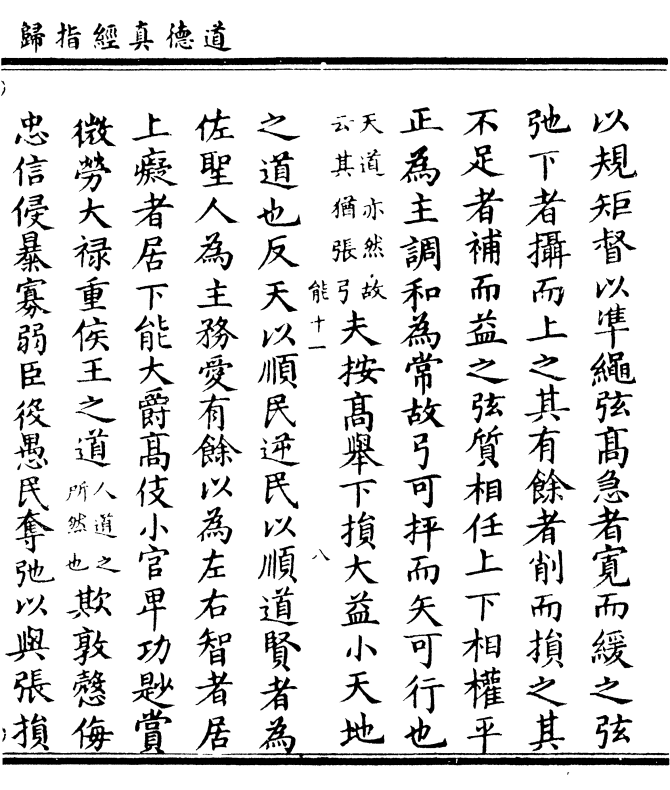 道德真經指歸
以規矩督以準繩弦髙急者寛而緩之弦
弛下者攝而上之其有餘者削而損之其
不足者補而益之弦質相任上下相權平
正為主調和為常故弓可抨而矢可行也
天道亦然故
云其猶張弓
夫按髙舉下損大益小天地
能十一
八
之道也反天以順民逆民以順道賢者為
佐聖人為主務愛有餘以為左右智者居
上癡者居下能大爵髙伎小官卑功尠賞
微勞大禄重侯王之道
人道之
所然也
欺敦慤侮
忠信侵暴寡弱臣役愚民奪弛以與張損